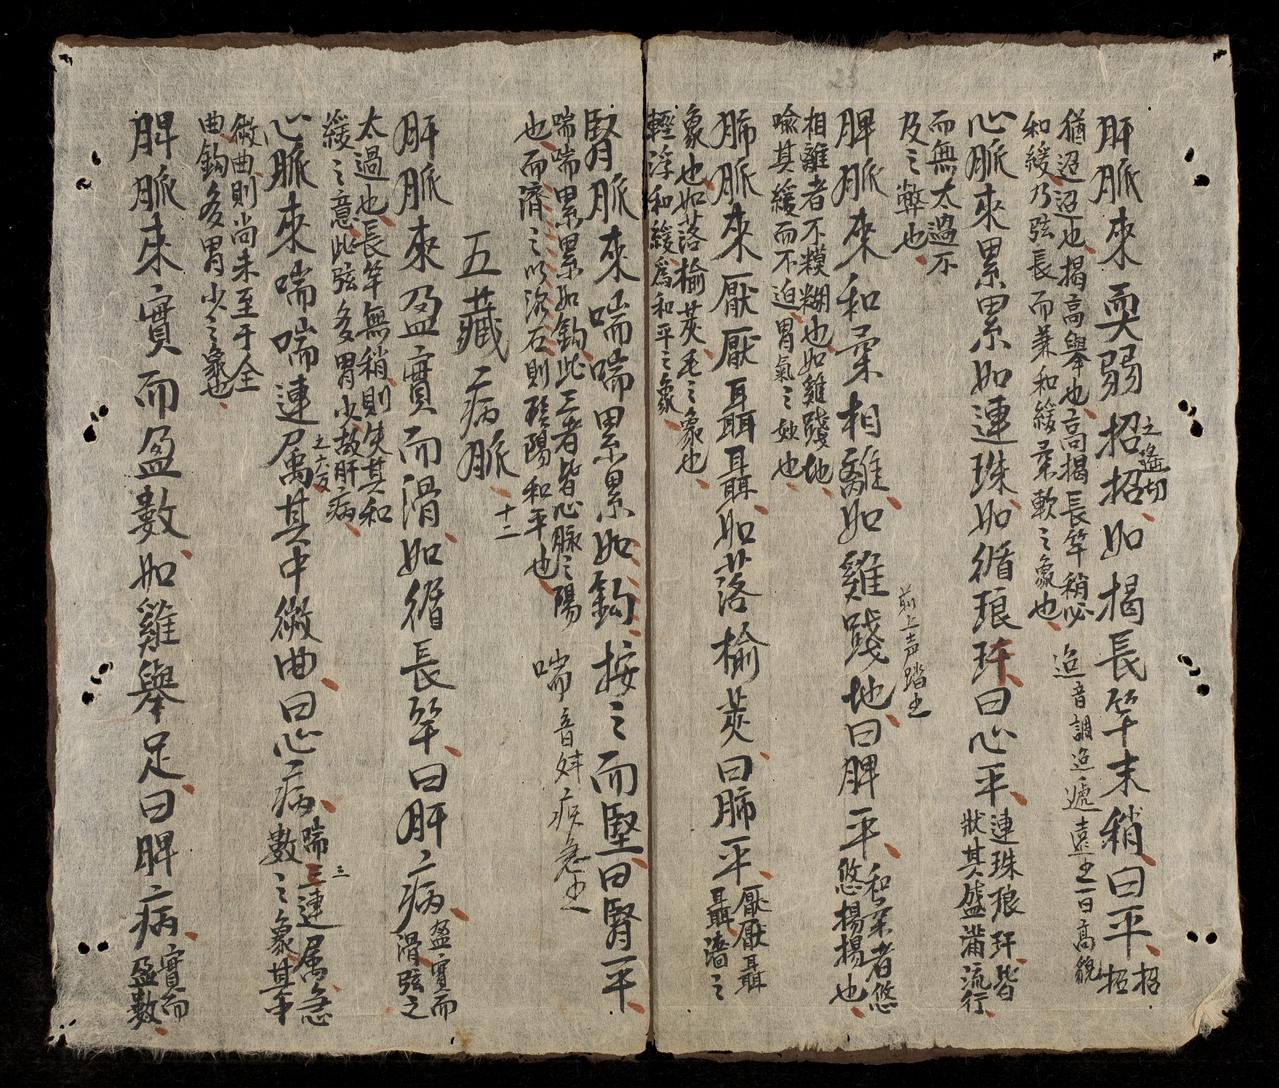 肝脈來耎弱招招如揭長竿末稍曰平招招
之遙切
猶迢迢也揭高舉也高揭長竿稍必
和緩乃弦長而兼和緩柔軟之象也
迢音調迢遞遠也一曰高貌
心脈來累累如連珠如循琅玕曰心平連珠琅玕皆
狀其盛滿流行
而無太過不
及之弊也
脾脈來和柔相離如雞踐地曰脾平和柔者悠
悠揚揚也
踐上声踏也
相離者不模糊也如雞踐地
喻其緩而不迫胃氣之妙也
肺脈來厭厭聶聶如落榆莢曰肺平厭厭聶
聶濇之
象也如落榆莢毛之象也
輕浮和緩為和平之象
腎脈來喘喘累累如鈎按之而堅曰腎平
喘喘累累如鈎此三者皆心脉之陽
也而濟之以沉石則陰陽和平也
喘音疾急也
五藏病脈十二
肝脈來盈實而滑如循長竿曰肝病盈實而
滑弦之
太過也長竿無稍則失其和
緩之意此弦多胃少故肝病
之太多
心脈來喘喘連屬其中微曲曰心病喘三連屬急
數之象其中
微曲則尚未至于全
曲鈎多胃少之象也
脾脈來實而盈數如雞舉足曰脾病實而
盈數